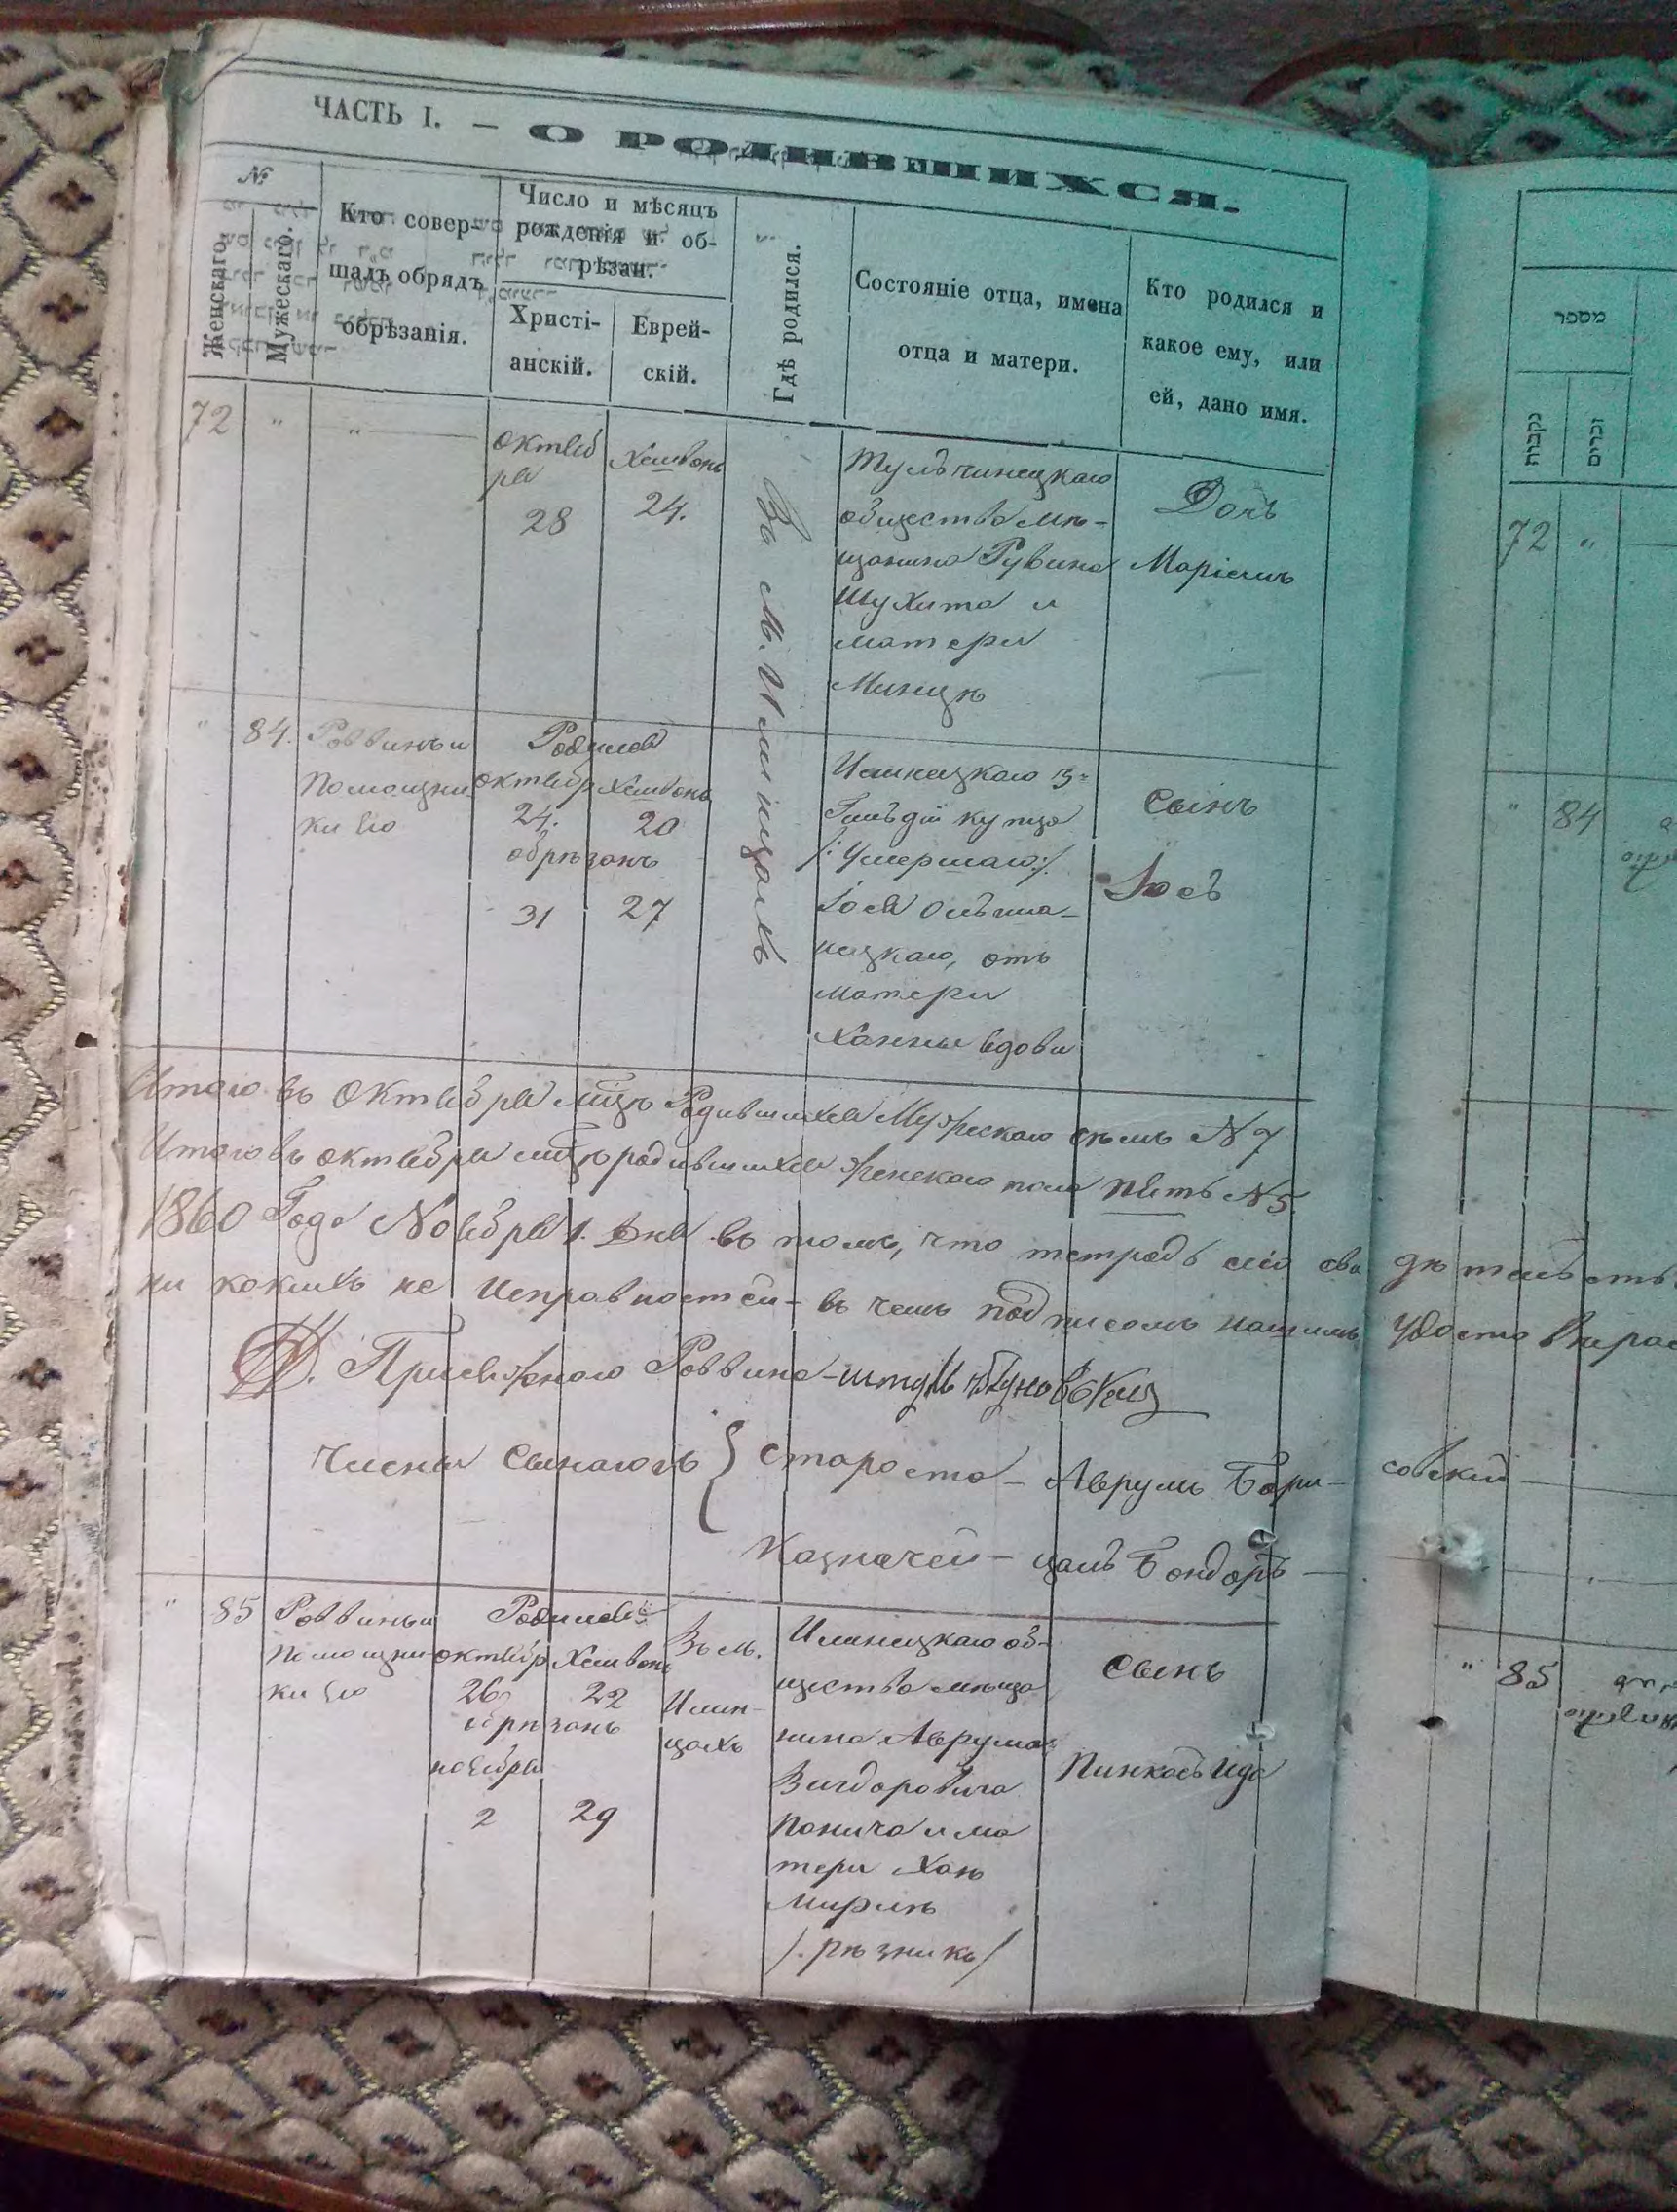 ЧАСТЬ I. — О РОДИВШИХСЯ.
№
Женскаго.
Мужескаго.
Кто совер-
шалъ обрядъ
обрѣзанія.
Число и мѣсяцъ
рожденія и об-
рѣзан.
Христі-
анскій.
Еврей-
скій.
Гдѣ родился.
Состояніе отца, имена
отца и матери.
Кто родился и
какое ему, или
ей, дано имя.
72 " "
октяб
ря
28
Хешвонъ
24.
Въ м. Илинцахъ
Тульчинецкаго
общества мѣ-
щанина Рувина
Шухита и
матери
Минцѣ
Дочь
Маріемъ
" 84. Раввинъ и
помощни
ки его
Родился
октябр Хешвонъ
24. 20
обрѣзанъ
31 27
Илинецкаго 3-
Гильдіи купца
/: Умершаго :/.
Іося Ольша-
ницкаго, отъ
матери
Ханны вдови
Сынъ
Іось
Итого въ Октябрѣ мцѣ Родившихся Мужескаго семь N 7
Итого въ октябрѣ мцѣ родившихся женскаго пола пять N 5.
1860 Года Ноября 1. Дня въ томъ, что тетрадь сія сви дѣтельств
ни какихъ не исправностей - въ чемъ подписомъ нашимъ удостовѣрае
Присяжнаго Раввина -
Члены Сынагогъ { Староста - Аврумъ Бари- совскій
Казначей - цаль Бондарь
" 85 Раввинъ и
помощни
ки его
Родился
октябр Хешвонъ
26 22
обрѣзанъ
ноября
2 29
Въ м.
Илин-
цахъ
Илинецкаго об-
щества мѣща
нина Аврума
Вигдоровича
Панича и ма
тери Хаѣ
Мирлѣ
/. рѣзникъ /
Сынъ
Пинхасъ Ида
מספר
נקבות
זכרים
72 "
" 84
" 85